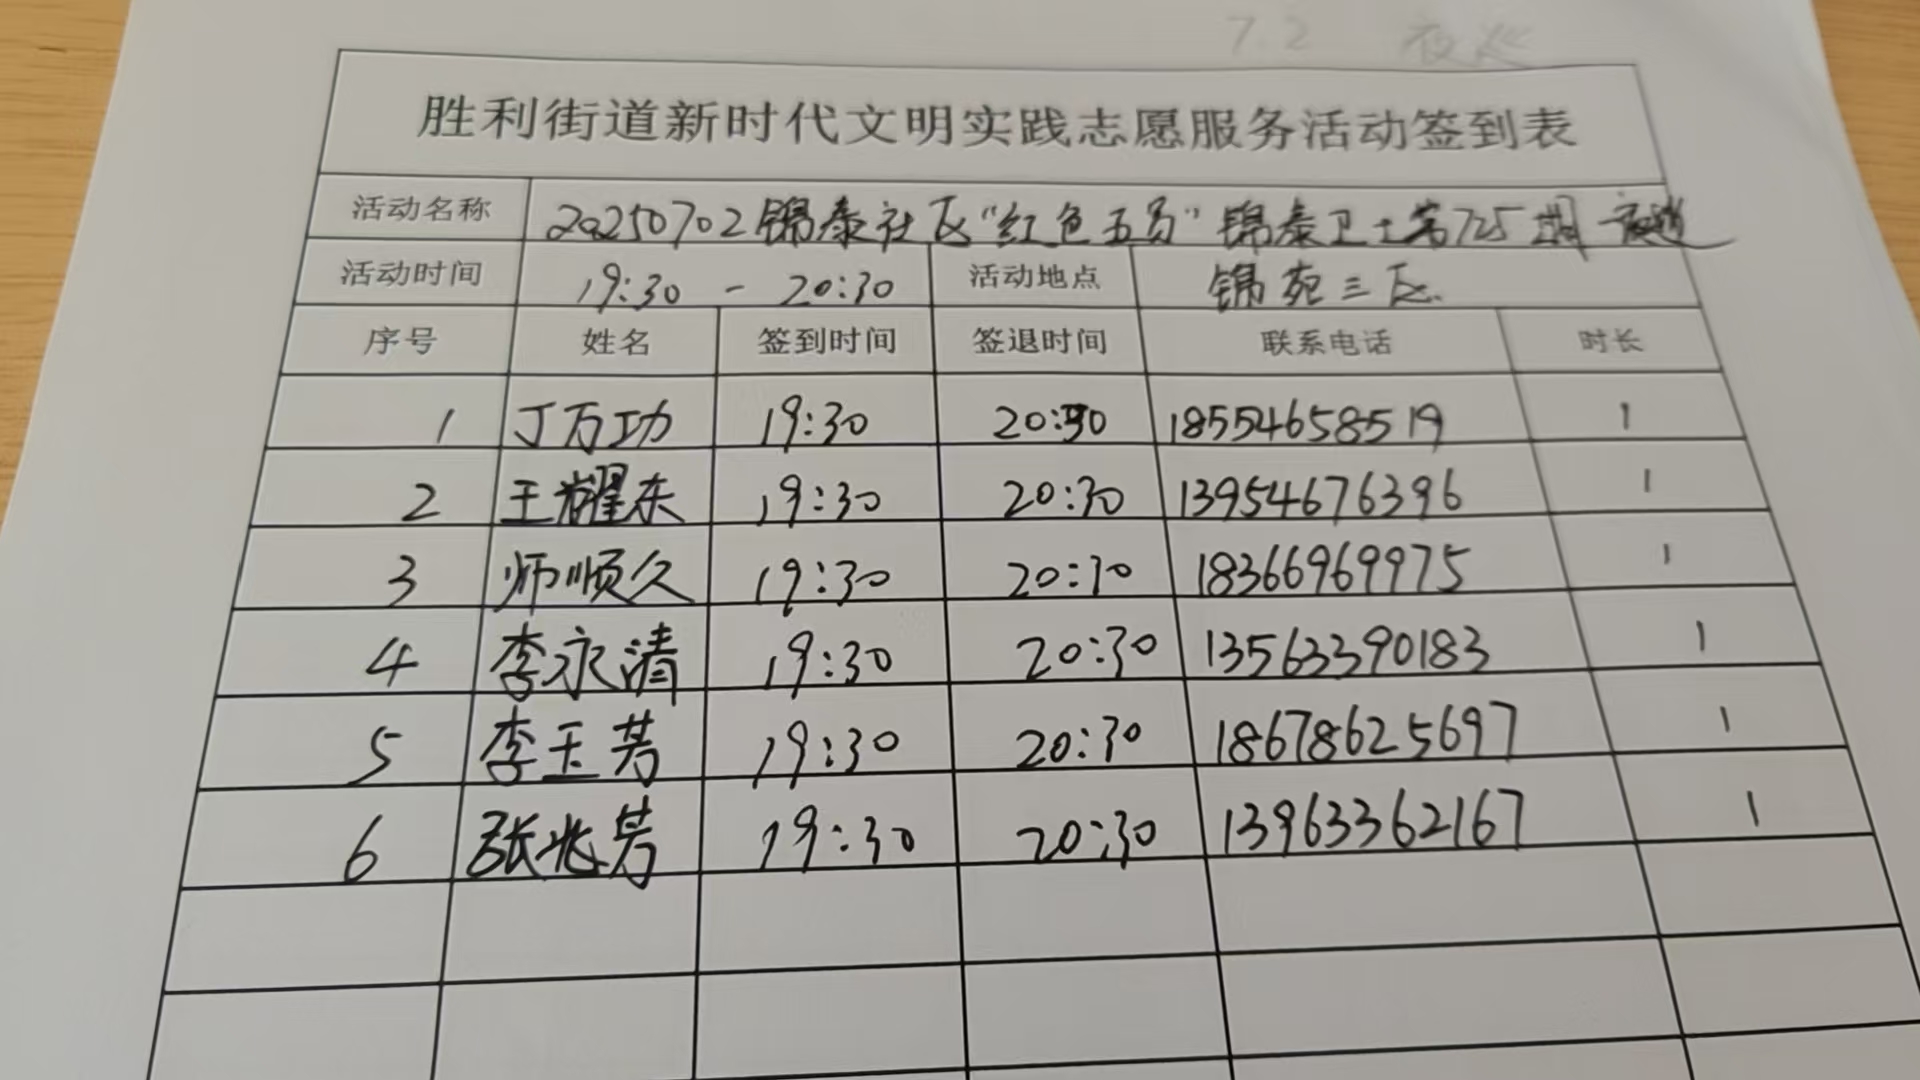 7.2 夜巡
胜利街道新时代文明实践志愿服务活动签到表
活动名称 20250702锦泰社区“红色五员”锦泰卫士第725期 夜巡
活动时间 19:30 - 20:30 活动地点 锦苑三区
序号 姓名 签到时间 签退时间 联系电话 时长
1 丁万功 19:30 20:30 18554658519 1
2 王耀东 19:30 20:30 13954676396 1
3 师顺久 19:30 20:30 18366969975 1
4 李永清 19:30 20:30 13563390183 1
5 李玉芳 19:30 20:30 18678625697 1
6 张兆芳 19:30 20:30 13963362167 1